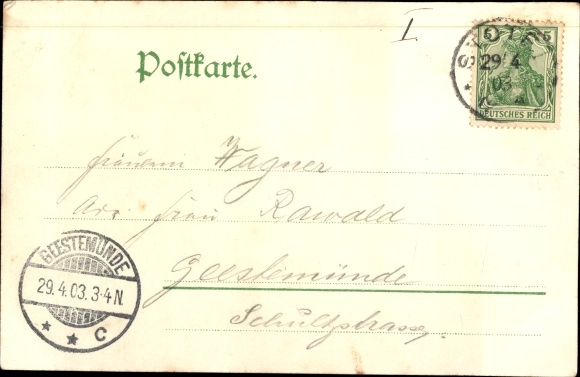 I
5 5
29 4
03
DEUTSCHES REICH
Postkarte.
Fräulein Wagner
Frau Rawald
Geestemünde
Schulstrasse
GEESTEMÜNDE
29.4.03.3-4N.
* * C